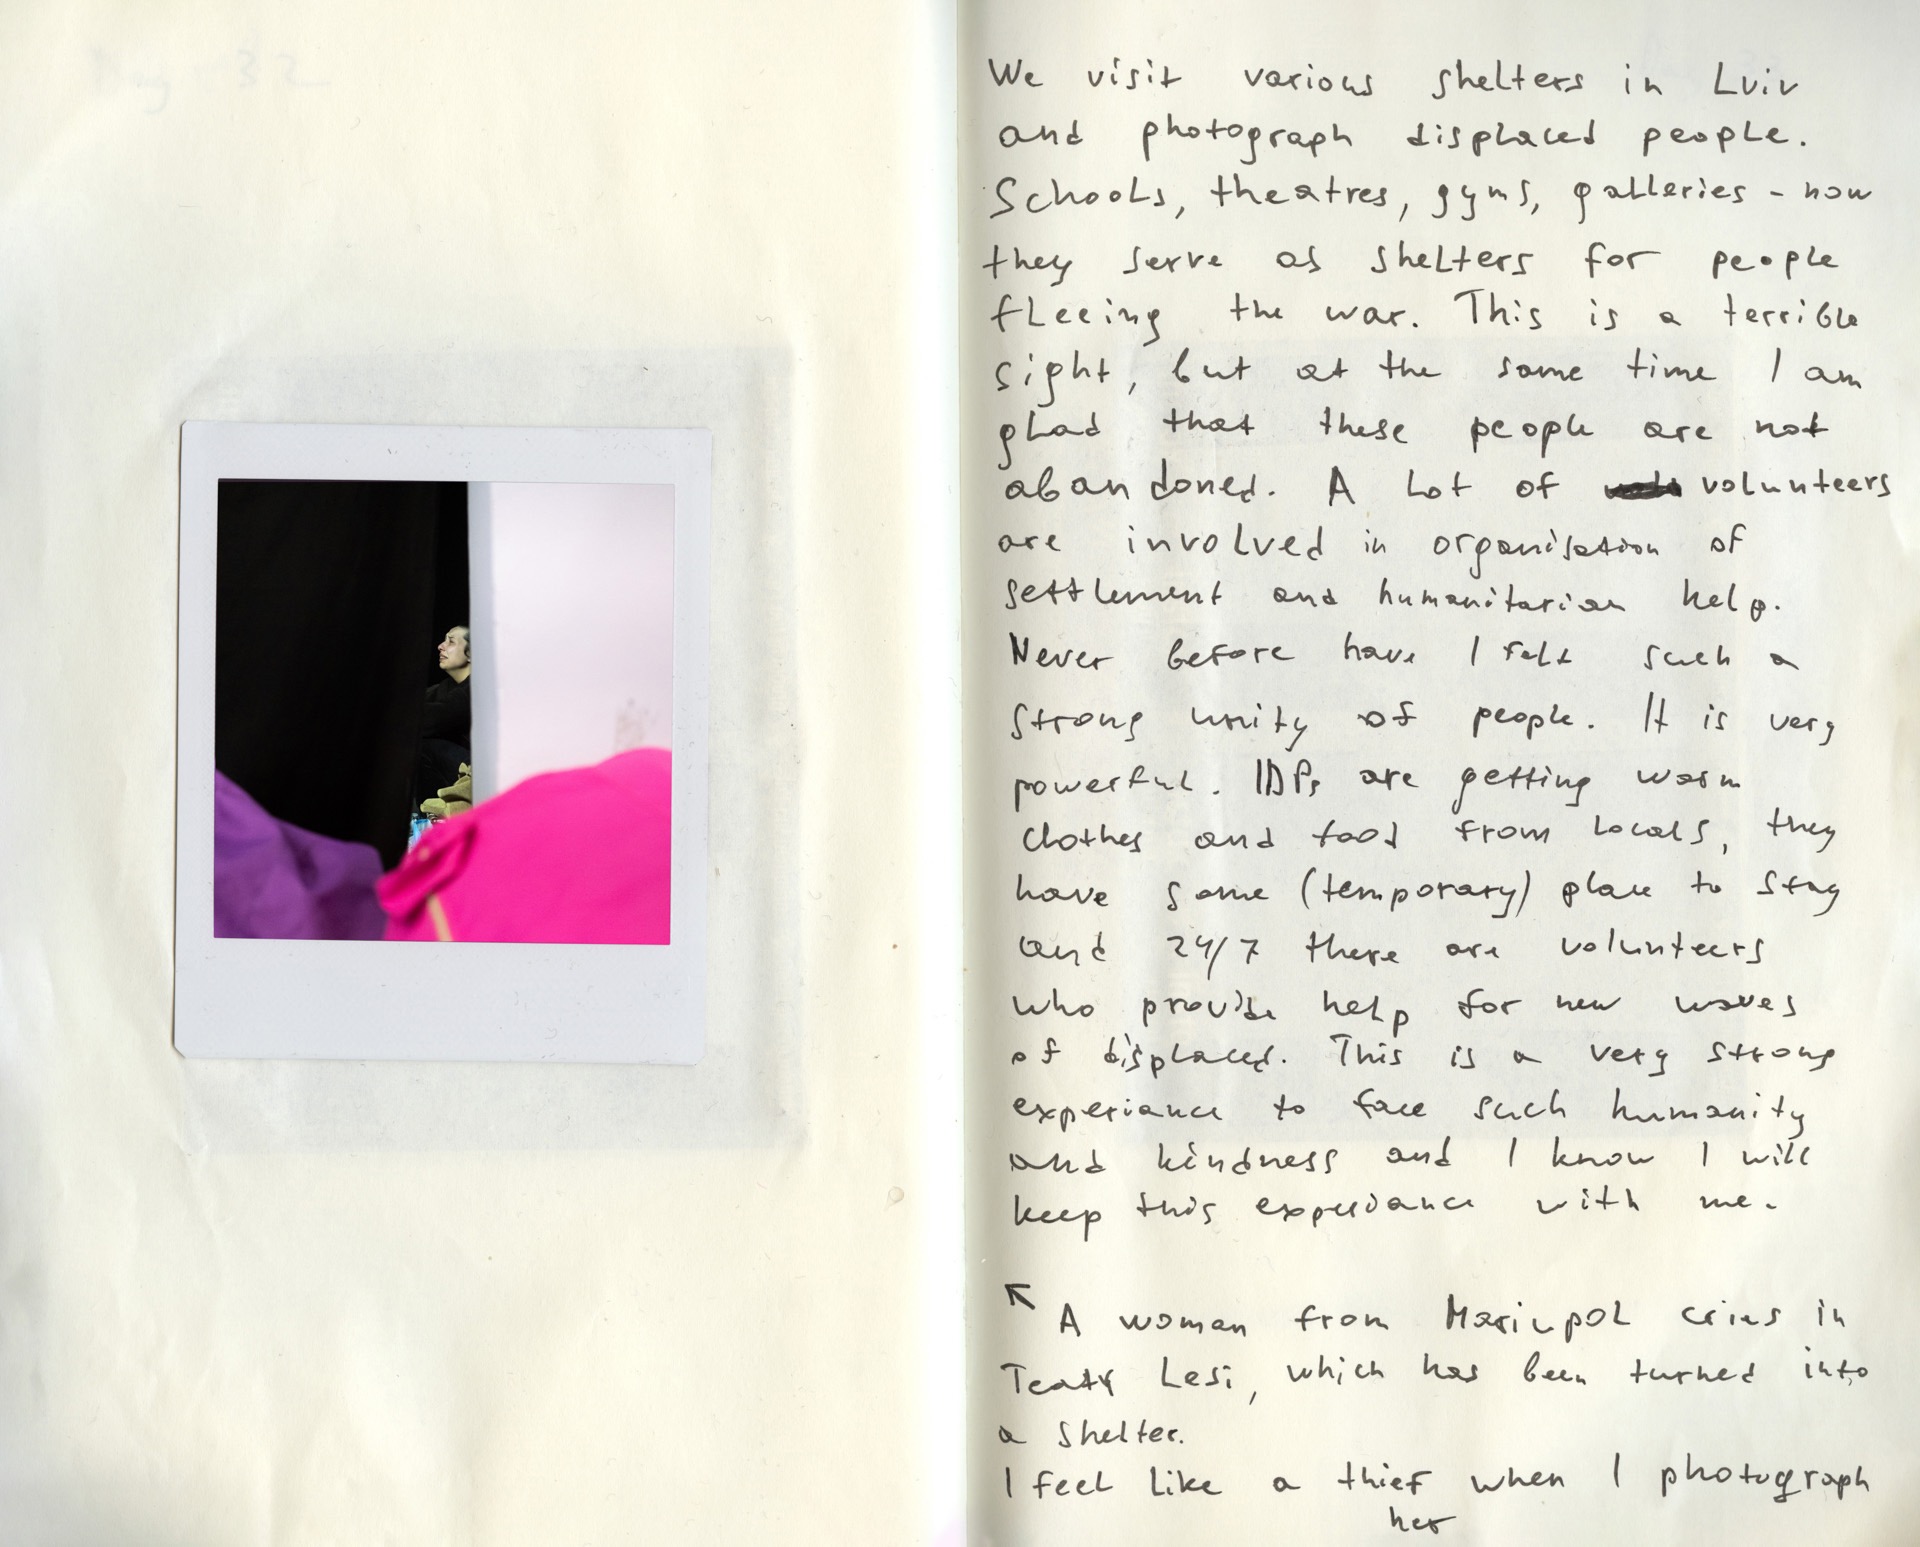 We visit various shelters in Lviv
and photograph displaced people.
Schools, theatres, gyms, galleries - now
they serve as shelters for people
fleeing the war. This is a terrible
sight, but at the same time I am
glad that these people are not
abandoned. A lot of volunteers
are involved in organisation of
settlement and humanitarian help.
Never before have I felt such a
strong unity of people. It is very
powerful. IDPs are getting warm
clothes and food from locals, they
have some (temporary) place to stay
and 24/7 there are volunteers
who provide help for new waves
of displaced. This is a very strong
experiance to face such humanity
and kindness and I know I will
keep this experiance with me.
↖ A woman from Mariupol cries in
Teatr Lesi, which has been turned into
a shelter.
I feel like a thief when I photograph
her